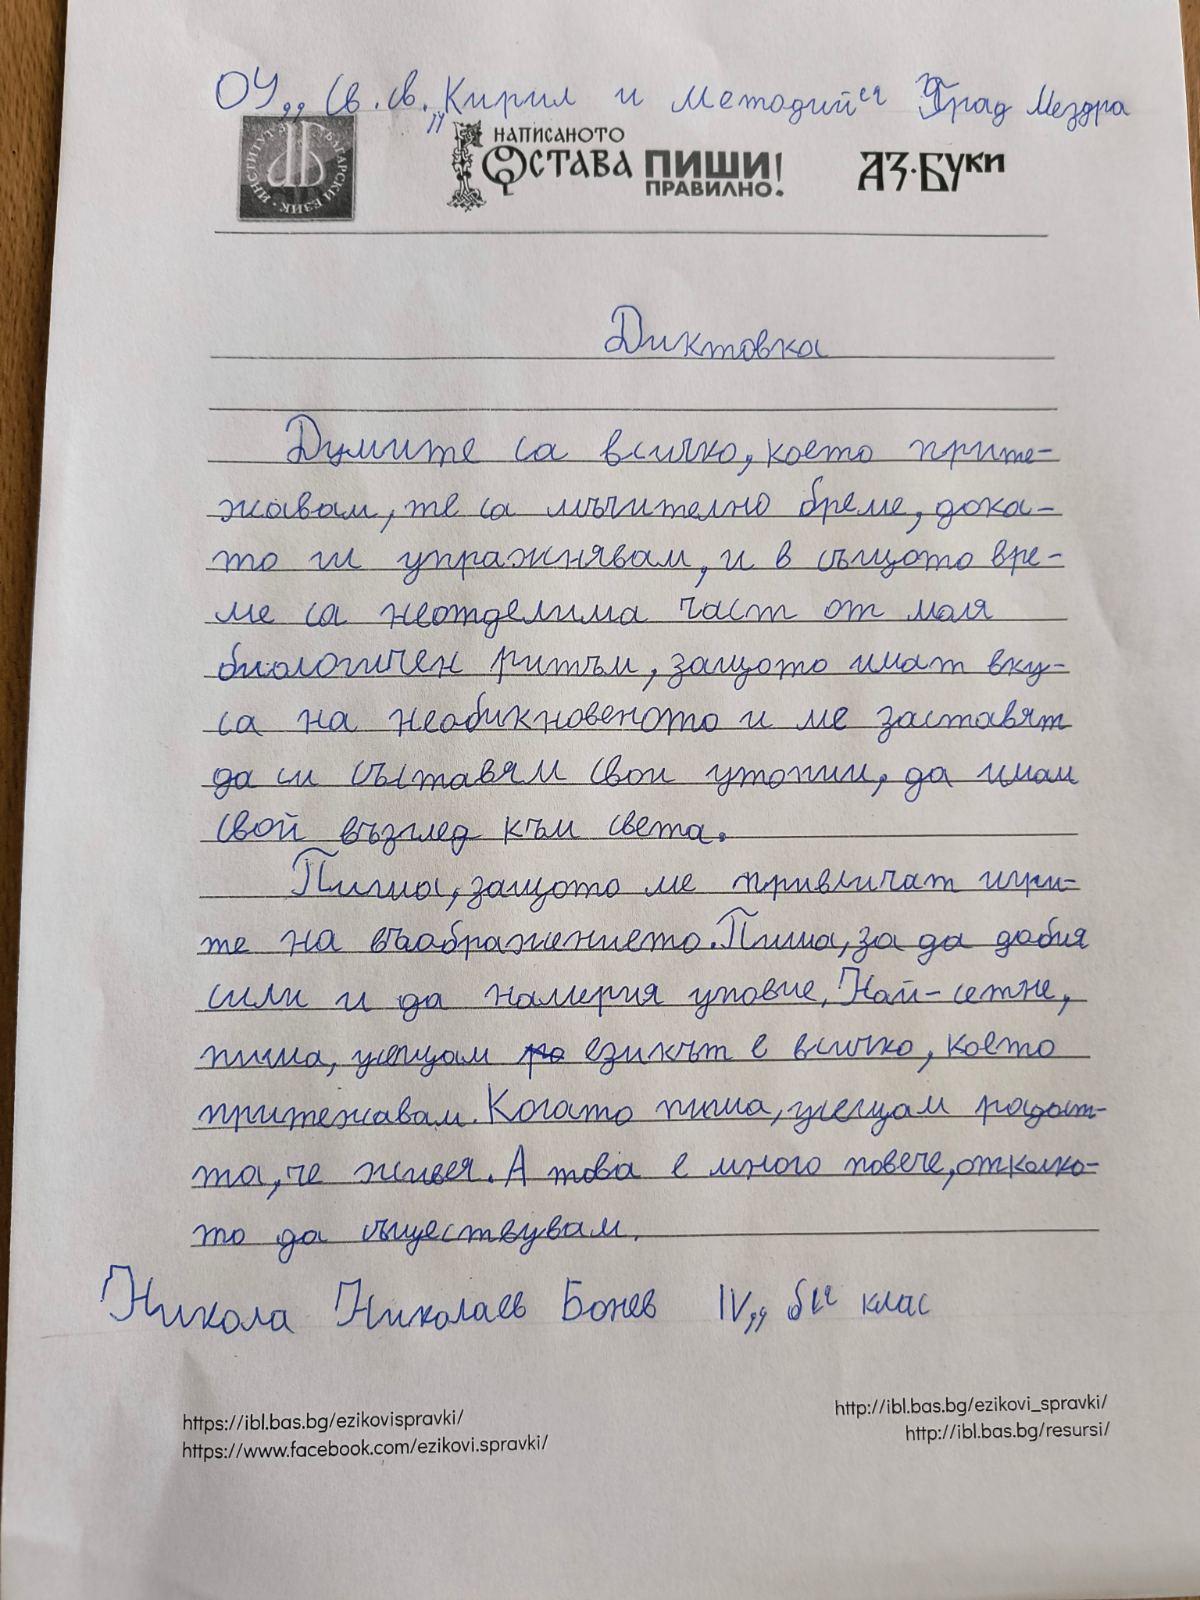 ОУ,, Св. св. "Кирил и Методий“ Град Мездра
ИНСТИТУТ ЗА БЪЛГАРСКИ ЕЗИК
НАПИСАНОТО ОСТАВА ПИШИ ПРАВИЛНО! АЗ·БУКИ
Диктовка
Думите са всичко, което прите-
жавам, те са мъчително бреме, дока-
то ги упражнявам, и в същото вре-
ме са неотделима част от моля
биологичен ритъм, защото имат вку-
са на необикновеното и ме заставят
да си съставям свои утопии, да имам
свой възглед към света.
Пиша, защото ме привличат игри-
те на въображението. Пиша, за да добия
сили и да намеря уповие. Най-сетне,
пиша, усещам езикът е всичко, което
притежавам. Когато пиша, усещам радост-
та, че живея. А това е много повече, отколко-
то да съществувам.
Никола Николаев Бонев IV,, б“ клас
https://ibl.bas.bg/ezikovispravki/
https://www.facebook.com/ezikovi.spravki/
http://ibl.bas.bg/ezikovi_spravki/
http://ibl.bas.bg/resursi/